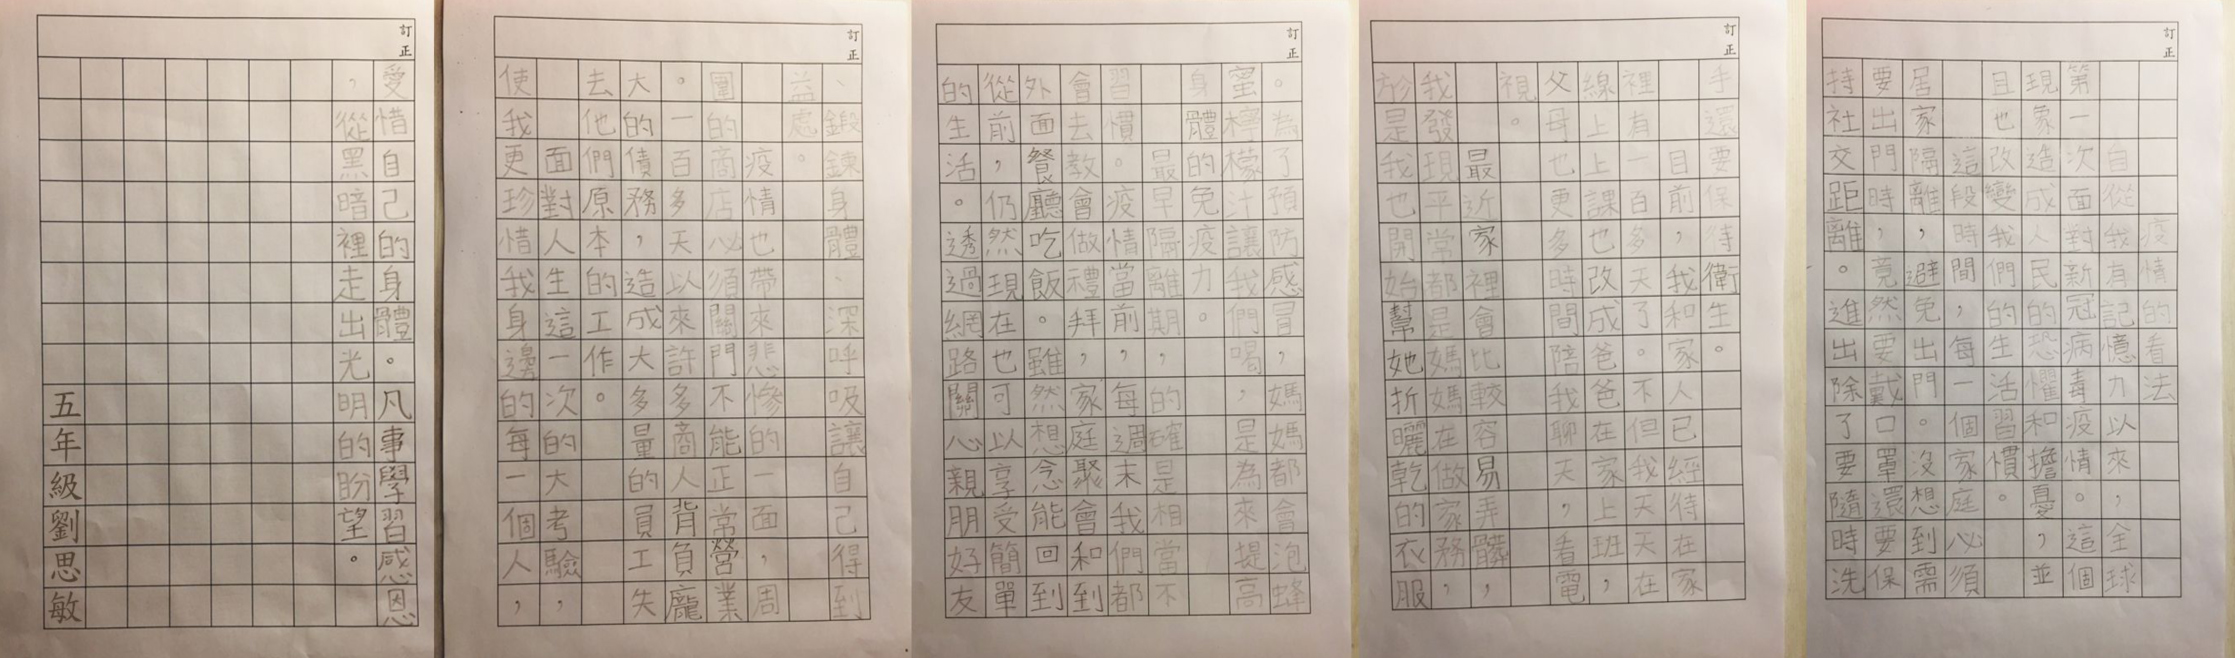 訂正
疫情的看法
自從我有記憶力以來，全球
第一次面對新冠病毒疫情。這個
現象造成人民的恐懼和擔憂，並
且也改變我們的生活習慣。
這段時間，每一個家庭必須
居家隔離，避免出門。沒想到需
要出門時，竟然要戴口罩還要保
持社交距離。進出除了要隨時洗
訂正
手還要保待衛生。
目前，我和家人已經待在家
裡有一百多天了。不但我天天在
線上上課也改成爸爸在家上班，
父母也更多時間陪我聊天，看電
視。
最近家裡會比較容易弄髒，
我發現平常都是媽媽在做家務，
於是我也開始幫她折曬乾的衣服
訂正
。為了預防感冒，媽媽都會泡蜂
蜜檸檬汁讓我們喝，是為來提高
身體的免疫力。
最早隔離期，的確是相當不
習慣。疫情當前，每週末我們都
會去教會做禮拜，家庭聚會和到
外面餐廳吃飯。雖然想念能回到
從前，仍然現在也可以享受簡單
的生活。透過網路關心親朋好友
訂正
、鍛鍊身體、深呼吸讓自己得到
益處。
疫情也帶來悲慘的一面，周
圍的商店必須關門不能正常營業
。一百多天以來許多商人背負龐
大的債務，造成大多量的員工失
去他們原本的工作。
面對人生這一次的大考驗，
使我更珍惜我身邊的每一個人，
訂正
愛惜自己的身體。凡事學習感恩
，從黑暗裡走出光明的盼望。
五年級劉思敏